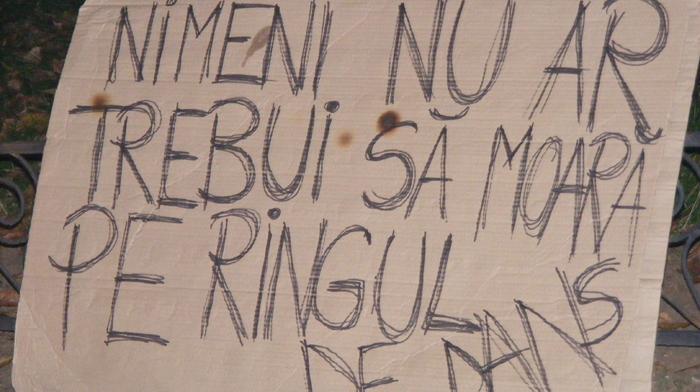 NiMENI NU AR
TREBUi SĂ MOARĂ
PE RiNGUL
DE DANS